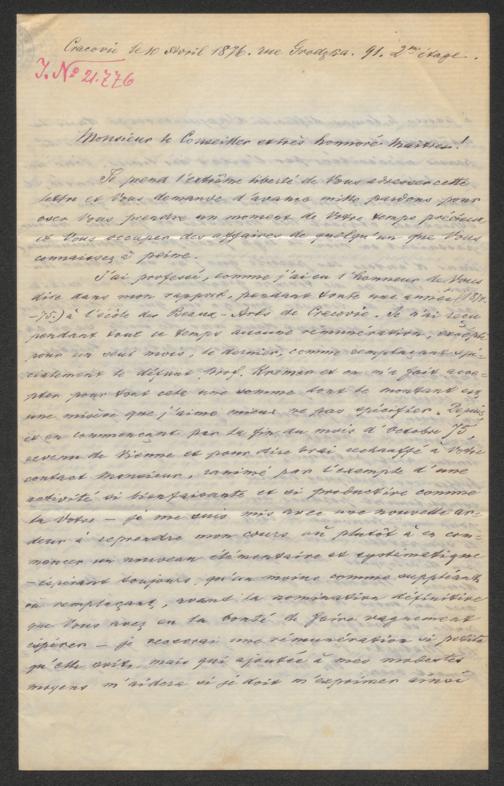 Cracovie le 10 Avril 1876. rue Grodzka. 91. 2me étage.
J. No 21.776
Monsieur le Conseiller et très honoré Maître!
Je prend l'extrême liberté de Vous adresser cette
lettre et Vous demande d'avance mille pardons pour
oser Vous prendre un moment de Votre temps précieux
et Vous occuper des affaires de quelqu'un que Vous
connaissez à peine.
J'ai professé, comme j'ai eu l'honneur de Vous
dire dans mon rapport, pendant toute une année (1874.
-75.) à l'école des Beaux-Arts de Cracovie. Je n'ai reçu
pendant tout ce temps aucune rémunération, excepté
pour un seul mois, le dernier, comme remplaçant
le défunt Prof. Kremer et on m'a fait acce-
pter pour tout cela une somme dont le montant est
une misère que j'aime mieux ne pas spécifier. Depuis,
et en commençant par la fin du mois d'Octobre 75,
revenu de Vienne et pour dire vrai rechauffé à Votre
contact Monsieur, ranimé par l'exemple d'une
activité si bienfaisante et si productive comme
la Votre – je me suis mis avec une nouvelle ar-
deur à reprendre mon cours où plutôt à en com-
mencer un nouveau élémentaire et systématique
– espérant toujours, qu'au moins comme suppléant
ou remplaçant, avant la nomination définitive
que Vous avez eu la bonté de faire vaguement
espérer – je recevrai une rémunération si petite
qu'elle soit, mais qui ajoutée à mes modestes
moyens m'aidera si je dois m'exprimer ainsi